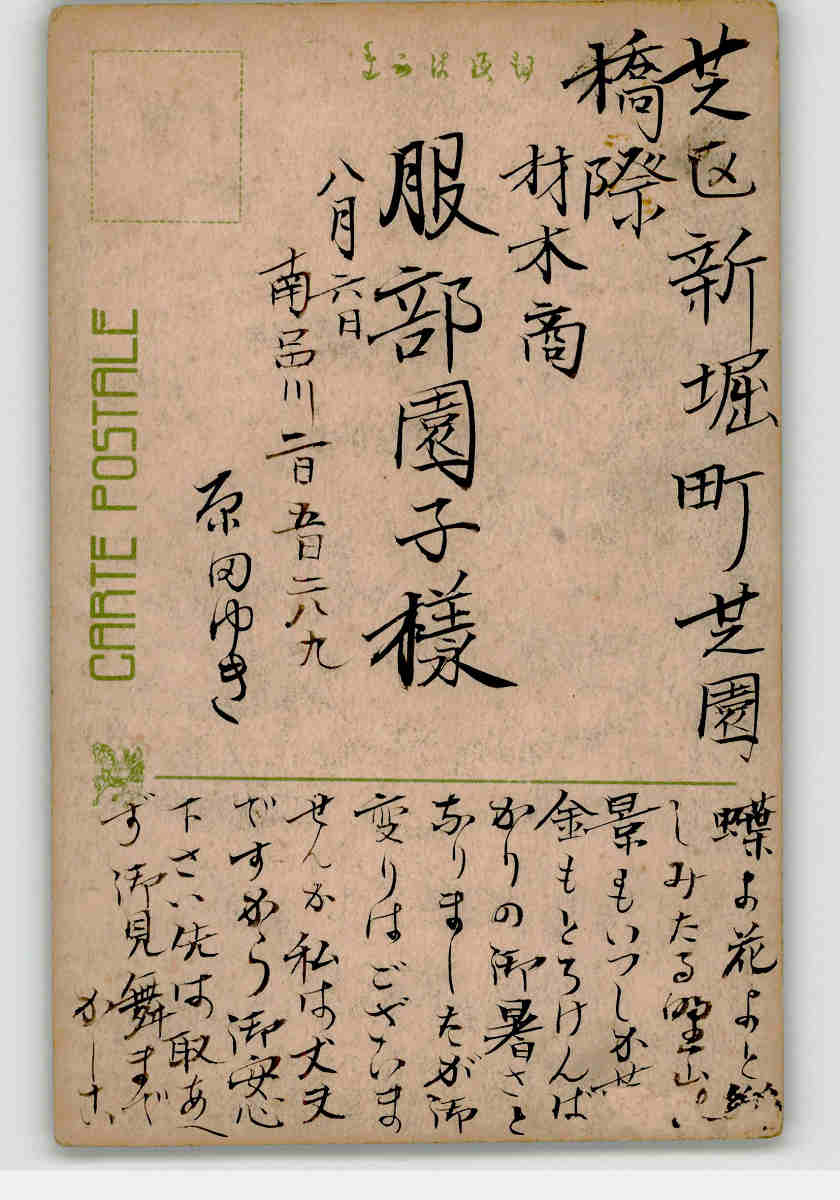 きかは便郵
芝区新堀町芝園
橋際
材木商
服部園子様
八月六日
南品川二百五百二八九
原田ゆき
CARTE POSTALE
蝶よ花よと
しみたる野山の
景もいつしかせ
金もとろけんば
かりの御暑さと
なりましたが御
変りはございま
せんか私は大丈
ですから御安心
下さい先は取あへ
ず御見舞まで
かしこ